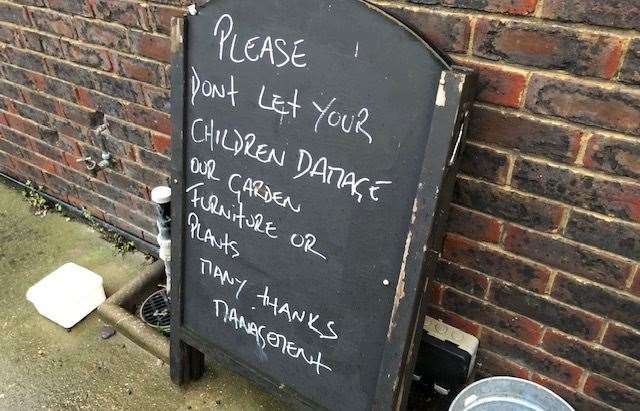 PLEASE
DONt LEt YOUR
CHILDREN DAMAGE
OUR GARDEN
FURNITURE OR
PLANTS
MANY tHANKS
MANAGEMENt